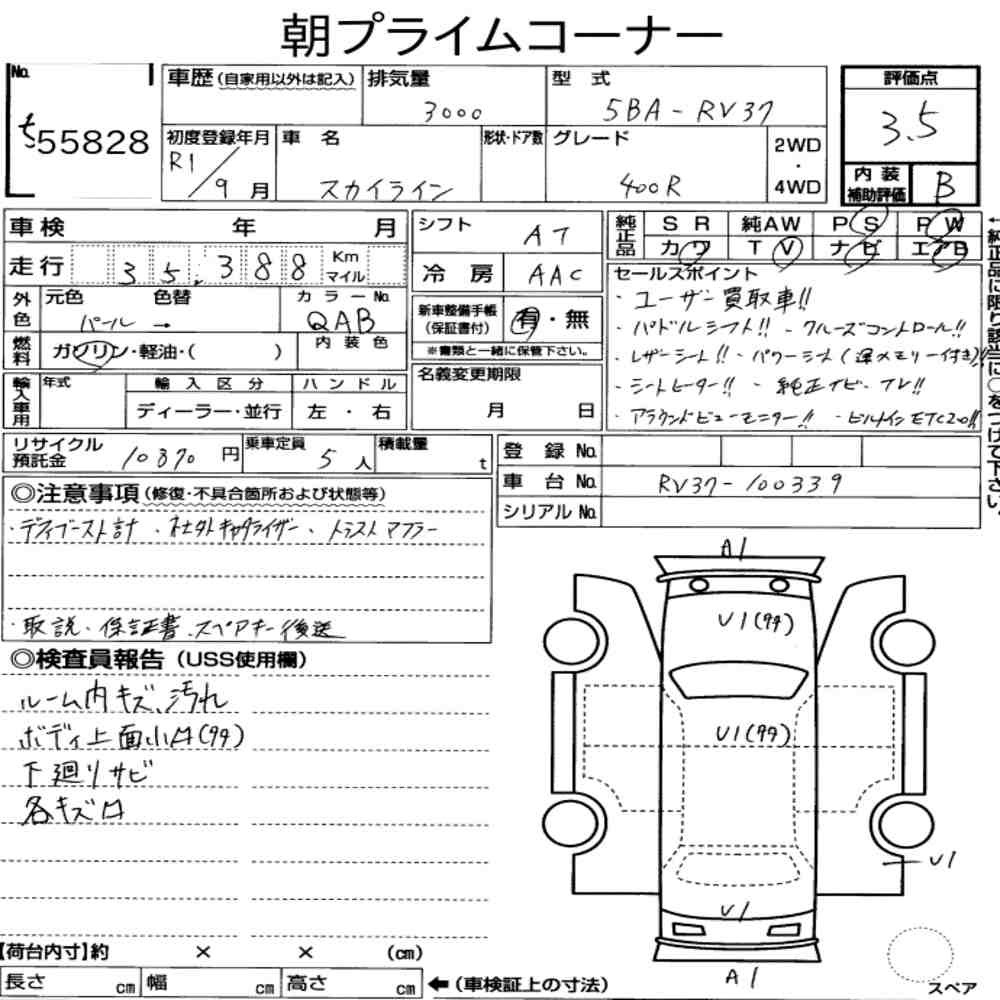 朝プライムコーナー
No.
55828
車歴(自家用以外は記入)
排気量
3000
型式
5BA-RV37
評価点
3.5
初度登録年月
R1/9月
車名
スカイライン
形状・ドア数
グレード
400R
2WD
・
4WD
内装
補助評価
B
車検 年 月
シフト
AT
純正品
SR 純AW PS PW
カワ TV ナビ エアB
走行 35,388 Km
マイル
冷房
AAC
外色
元色 色替
パール →
カラーNo.
QAB
新車整備手帳
(保証書付)
有・無
燃料
ガソリン・軽油・( )
内装色
※書類と一緒に保管下さい。
輸入車用
年式
輸入区分
ハンドル
ディーラー・並行
左・右
名義変更期限
月 日
セールスポイント
・ユーザー買取車!!
・パドルシフト!! ・クルーズコントロール!!
・レザーシート!! ・パワーシート(運メモリー付き)!!
・シートヒーター!! ・純正ナビ・TV!!
・アラウンドビューモニター!! ・ビルトインETC2.0!!
←純正品に限り該当に○をつけて下さい。
リサイクル
預託金
10370円
乗車定員
5人
積載量
t
登録No.
車台No.
RV37-100339
シリアルNo.
◎注意事項(修復・不具合箇所および状態等)
・デフィブースト計 ・社外キャタライザー ・トラストマフラー
・取説・保証書・スペアキー後送
◎検査員報告(USS使用欄)
ルーム内キズ、汚れ
ボディ上面小凹(タタ)
下廻りサビ
各キズ凹
A1
U1(タタ)
U1(タタ)
U1
U1
A1
スペア
【荷台内寸】約 × × (cm)
長さ cm 幅 cm 高さ cm ←(車検証上の寸法)